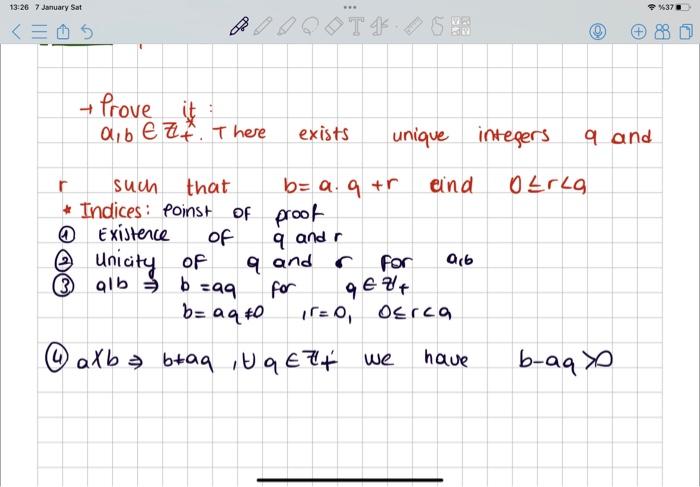 13:26 7 January Sat
%37
→ Prove it :
a,b ∈ Z₊*. There exists unique integers q and
r such that b= a.q +r and 0≤r<a
* Indices: Poinst OF proof
① Existence OF q and r
② Unicity OF q and r for a,b
③ a|b ⇒ b =aq for q ∈ Z₊
b= aq+0 ,r=0, 0≤r<a
④ a∤b ⇒ b≠aq ,∀ q ∈ Z₊ we have b-aq>0